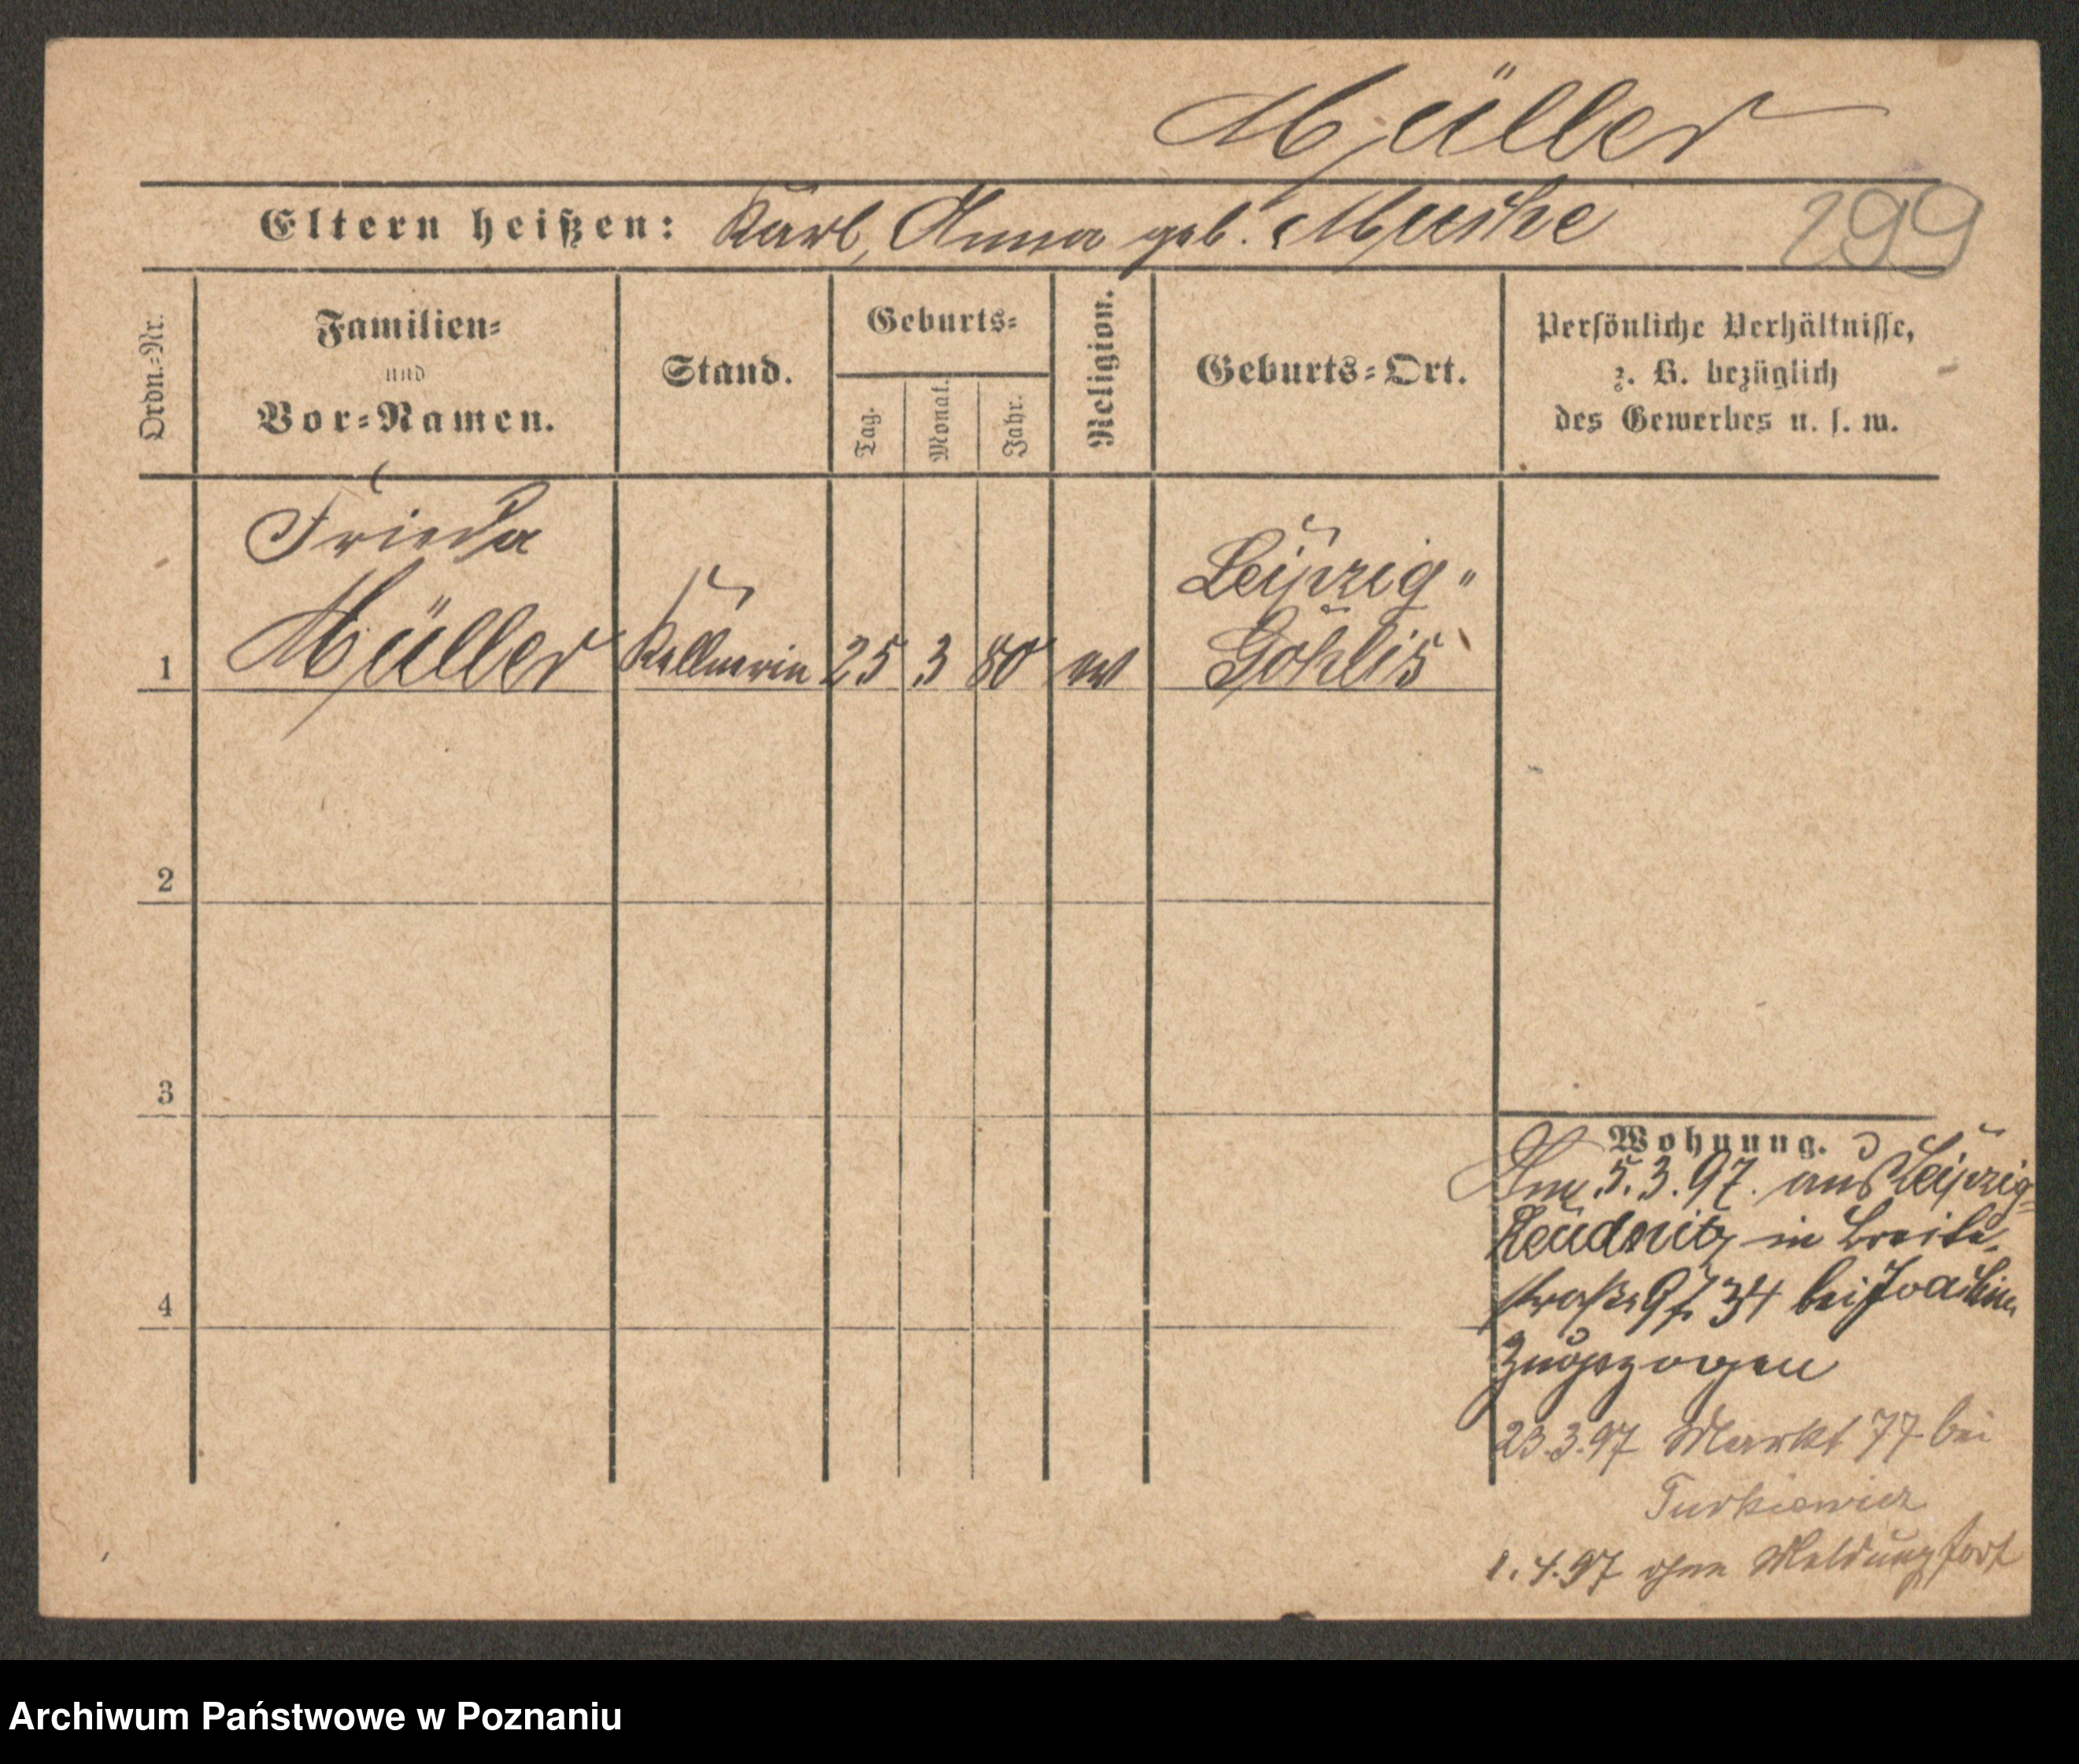 Müller
Eltern heißen: Karl, Anna geb. Muske
299
Ordn.=Nr.
Familien=
und
Vor=Namen.
Stand.
Geburts=
Tag.
Monat.
Jahr.
Religion.
Geburts=Ort.
Persönliche Verhältnisse,
z. B. bezüglich
des Gewerbes u. s. w.
Frieda
Müller
Kellnerin
25
3
80
ev
Leipzig"
Gohlis
1
2
3
4
Wohnung.
Am 5.3.97. aus Leipzig=
Reudnitz in Breite
straße 34 bei Joachim
Zugezogen
23.3.97 Markt 77 bei
Turkiewicz
1.4.97 ohne Meldung fort
Archiwum Państwowe w Poznaniu